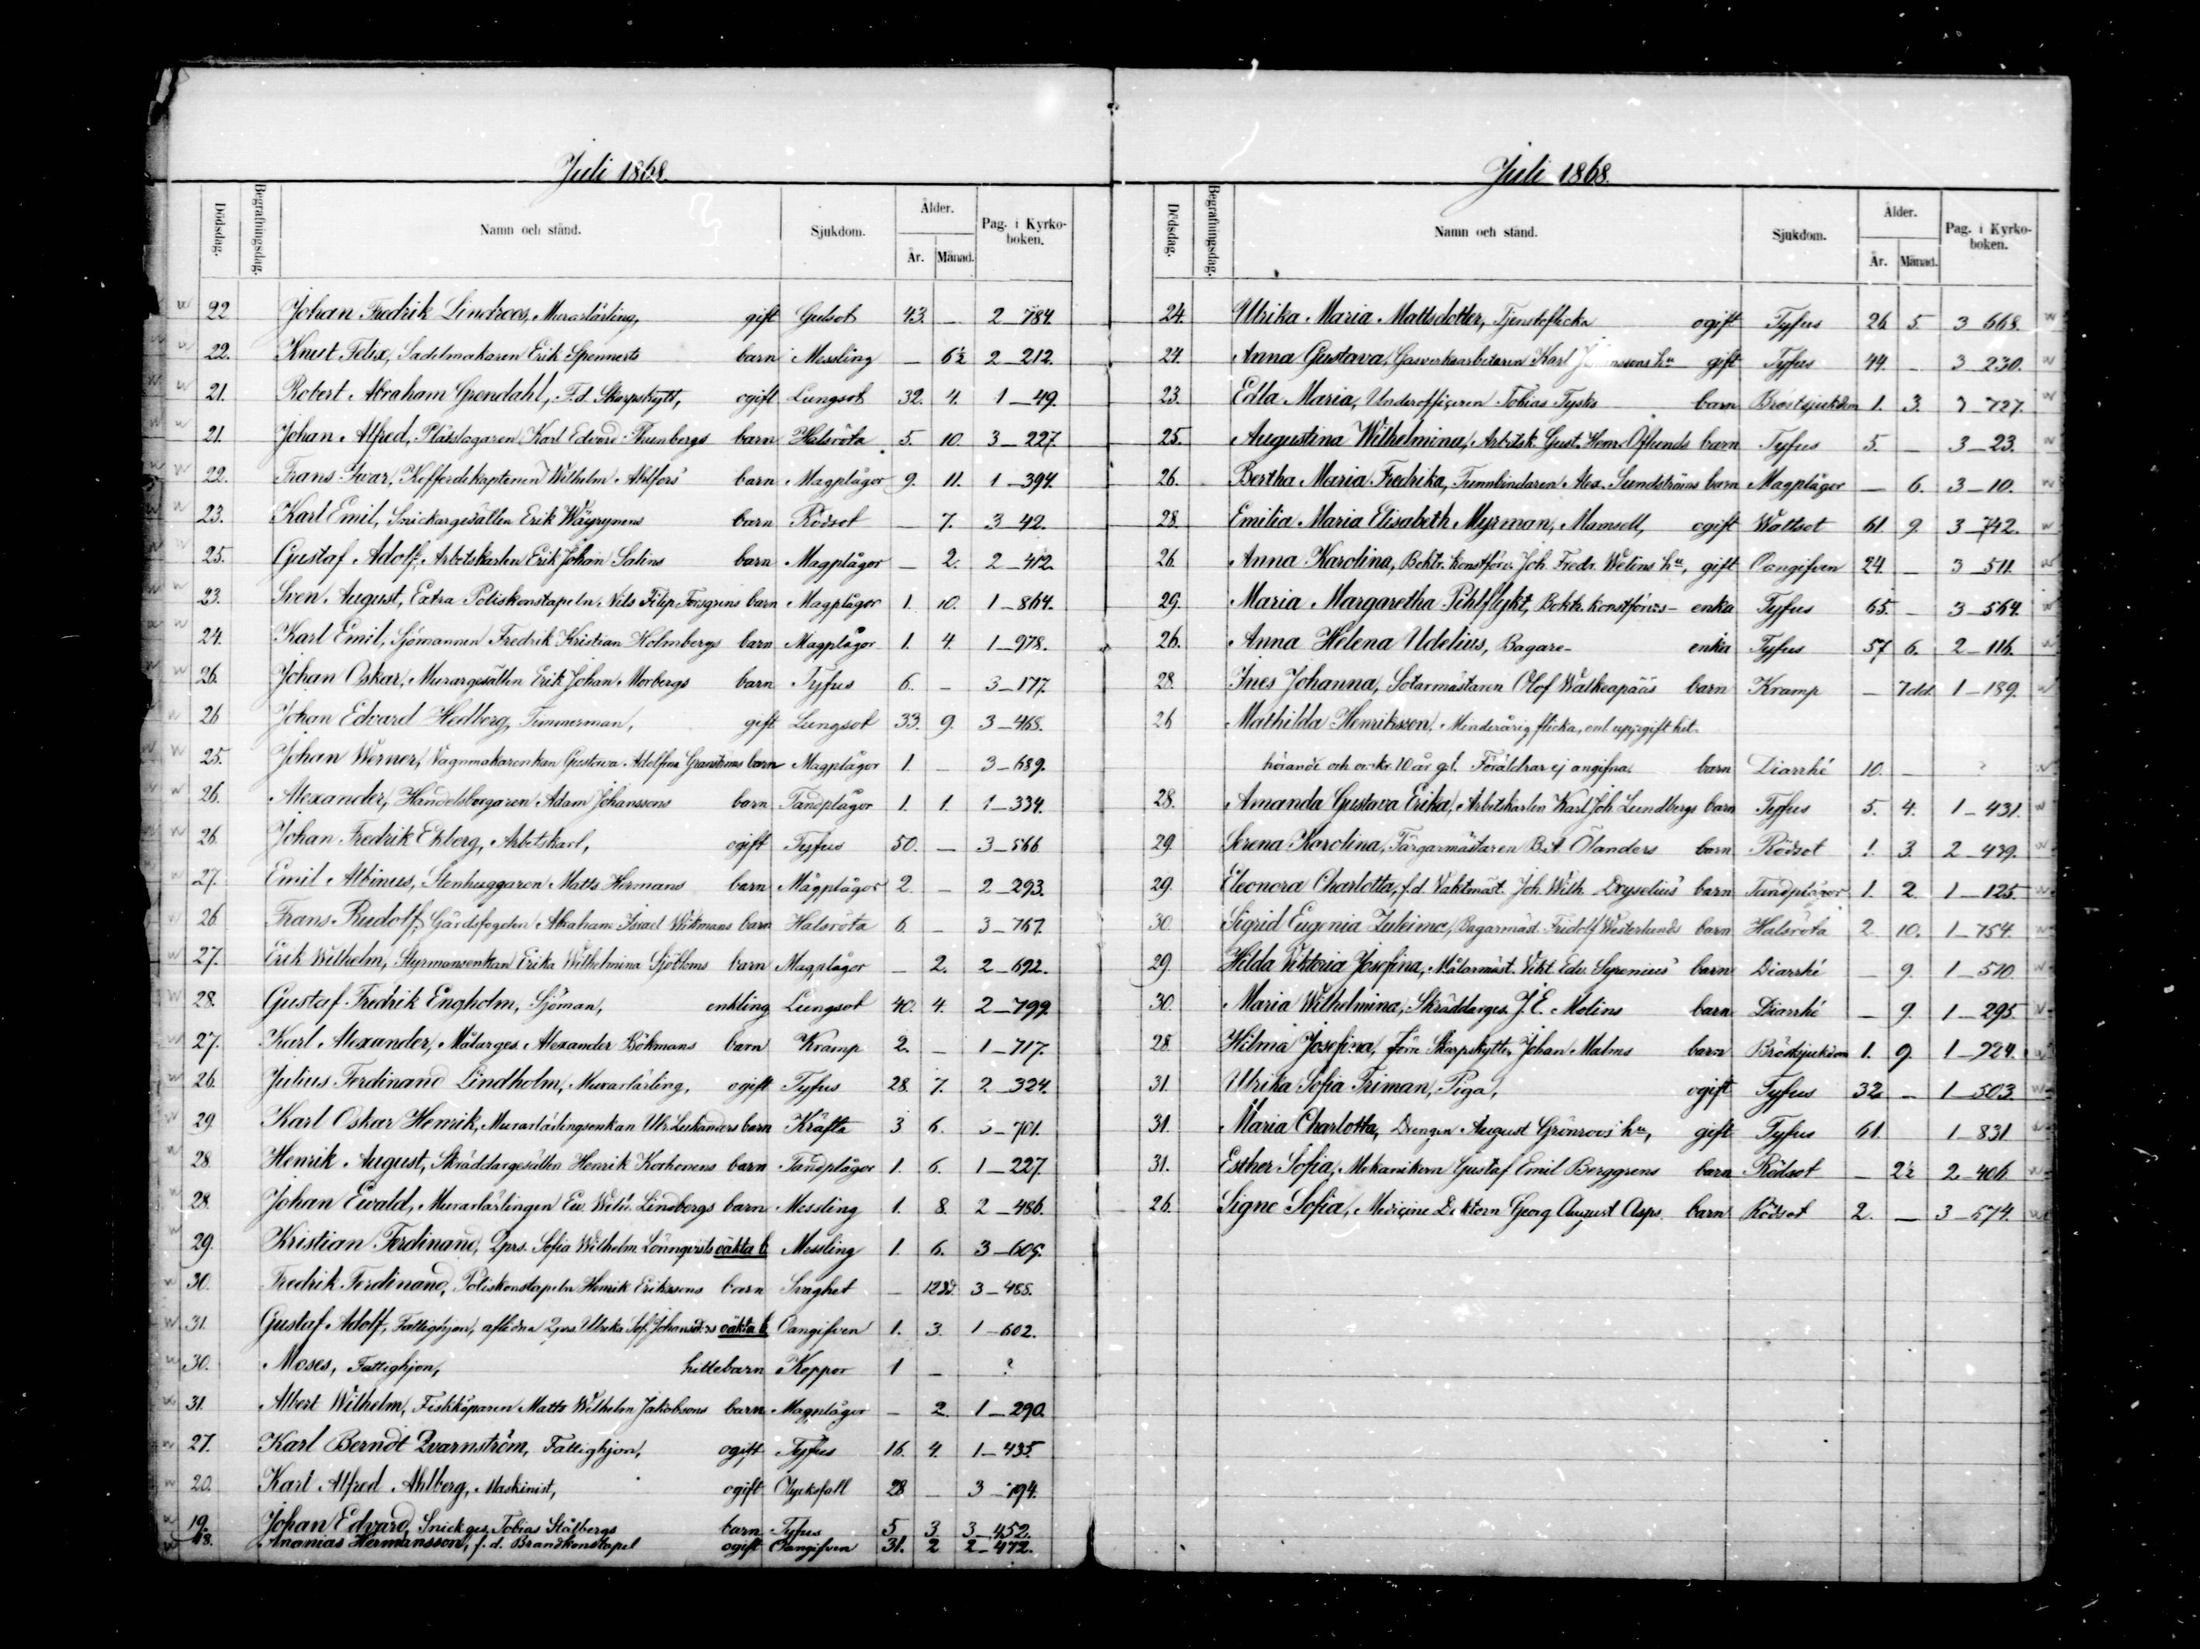 Juli 1868.
Dödsdag. Begrafningsdag. Namn och stånd. Sjukdom. Ålder. År. Månad. Pag. i Kyrko-boken.
22 Johan Fredrik Lindroos, Murarlärling, gift Gulsot 43. — 2 — 784.
22. Knut Felix, Sadelmakaren Erik Spennerts barn Messling — 6½ 2 212.
21. Robert Abraham Grendahl, F.d. Skarpskytt, ogift Lungsot 32. 4. 1 — 49.
21. Johan Alfred, Plåtslagaren Karl Edvard Thunbergs barn Halsröta 5. 10. 3 — 227.
22. Frans Ivar, Kofferdikaptenen Wilhelm Ahlfors' barn Magplågor 9. 11. 1 — 394.
23. Karl Emil, Snickargesällen Erik Wäyrynens barn Rödsot — 7. 3 42.
25. Gustaf Adolf, Arbetskarlen Erik Johan Salins barn Magplågor — 2. 2 — 412.
23. Sven August, Extra Poliskonstapeln Nils Filip Forsgrens barn Magplågor 1. 10. 1 — 864.
24. Karl Emil, Sjömannen Fredrik Kristian Holmbergs barn Magplågor 1. 4. 1 — 978.
26. Johan Oskar, Murargesällen Erik Johan Morbergs barn Tyfus 6. — 3 — 177.
26 Johan Edvard Hedberg, Timmerman, gift Lungsot 33. 9. 3 — 468.
25. Johan Werner, Vagnmakarenkan Gustava Adolfina Granströms barn Magplågor 1. — 3 — 689.
26. Alexander, Handelsborgaren Adam Johanssons barn Tandplågor 1. 1. 1 — 334.
26. Johan Fredrik Ekberg, Arbetskarl, ogift Tyfus 50. — 3 — 566
27. Emil Albinus, Stenhuggaren Matts Hermans barn Magplågor 2. — 2 — 293.
26 Frans Rudolf, Gårdsfogden Abraham Israel Wikmans barn Halsröta 6. — 3 — 767.
27. Erik Wilhelm, Styrmansenkan Erika Wilhelmina Sjöbloms barn Magplågor — 2. 2 — 692.
28. Gustaf Fredrik Engholm, Sjöman, enkling Lungsot 40. 4. 2 — 799.
27. Karl Alexander, Målarges. Alexander Bökmans barn Kramp 2. — 1 — 717.
26. Julius Ferdinand Lindholm, Murarlärling, ogift Tyfus 28. 7. 2 — 324.
29. Karl Oskar Henrik, Murarlärlingsenkan Ulr. Leskanders barn Kräfta 3 6. 3 — 701.
28. Henrik August, Skräddargesällen Henrik Korhonens barn Tandplågor 1. 6. 1 — 227.
28. Johan Ewald, Murarlärlingen Ew. Wilh. Lindbergs barn Messling 1. 8. 2 — 486.
29. Kristian Ferdinand, Qprs. Sofia Wilhelm. Lönnqvists oäkta b. Messling 1. 6. 3 — 609.
30. Fredrik Ferdinand, Poliskonstapeln Henrik Erikssons barn Svaghet — 12 dd. 3 — 488.
31. Gustaf Adolf, Fattighjon, aflidna Qprs. Ulrika Sof. Johansd:rs oäkta b. Oangifven 1. 3. 1 — 602.
30. Moses, Fattighjon, hittebarn Koppor 1 — ?
31. Albert Wilhelm, Fiskköparen Matts Wilhelm Jakobsons barn Magplågor — 2. 1 — 290.
27. Karl Berndt Qvarnström, Fattighjon, ogift Tyfus 16. 4. 1 — 435.
20. Karl Alfred Ahlberg, Maskinist, ogift Olycksfall 28 — 3 — 194.
19. Johan Edvard, Snickges. Tobias Stålbergs barn Tyfus 5 3. 3 — 452.
18. Ananias Hermansson, f.d. Brandkonstapel ogift Oangifven 31. 2 2 — 472.
Juli 1868.
Dödsdag. Begrafningsdag. Namn och stånd. Sjukdom. Ålder. År. Månad. Pag. i Kyrko-boken.
24. Ulrika Maria Mattsdotter, Tjensteflicka ogift Tyfus 26. 5. 3 668.
24. Anna Gustava, Gasverksarbetaren Karl Johanssons h:u gift Tyfus 44. — 3 — 230.
23. Edla Maria, Underofficeren Tobias Tysks barn Bröstsjukdom 1. 3. 3 — 727.
25. Augustina Wilhelmina, Arbetsk. Gust. Henr. barn Tyfus 5. — 3 — 23.
26. Bertha Maria Fredrika, Tunnbindaren Alex. Sundströms barn Magplågor — 6. 3 — 10.
28. Emilia Maria Elisabeth Myrman, Mamsell, ogift Wattsot 61. 9. 3 — 742.
26. Anna Karolina, Boktr. konstförv. Joh. Fredr. Welins h:u, gift Oangifven 24. — 3 — 511.
29. Maria Margaretha Pihlflykt, Boktr. konstförvs — enka Tyfus 65. — 3 — 564.
26. Anna Helena Udelius, Bagare- enka Tyfus 57 6. 2 — 116.
28. Ines Johanna, Sotarmästaren Olof Walkeapääs barn Kramp — 7 dd. 1 — 189.
26 Mathilda Henriksson, Minderårig flicka, enl. uppgift hit-
hörande och o:kr. 10 år g:l. Föräldrar ej angifna. barn Diarrhé 10. — ?
28. Amanda Gustava Erika, Arbetskarlen Karl Joh. Lundbergs barn Tyfus 5. 4. 1 — 431.
29. Serena Karolina, Färgarmästaren Ölanders barn Rödsot 1. 3. 2 — 439.
29. Eleonora Charlotta, f.d. Vaktmäst. Joh. Wilh. Dryselius' barn Tandplågor 1. 2. 1 — 125.
30. Sigrid Eugenia Zuleima, Bagarmäst. Fridolf Westerlunds barn Halsröta 2. 10. 1 — 754.
29. Hilda Wiktoria Josefina, Målarmäst. Vikt. Edv. Syrenius' barn Diarrhé — 9. 1 — 510.
30. Maria Wilhelmina, Skräddarges. J. E. Molins barn Diarrhé — 9. 1 — 295.
28. Hilma Josefina, förre Skarpskytten Johan Malms barn Bröstsjukdom 1. 9. 1 — 924.
31. Ulrika Sofia Friman, Piga, ogift Tyfus 32. — 1 — 503.
31. Maria Charlotta, Drengen August Grönroos' h:u, gift Tyfus 61. 1 — 831
31. Esther Sofia, Mekanikern Gustaf Emil Berggrens barn Rödsot — 2½ 2 — 406.
26. Signe Sofia, Medicine Doktorn Georg August Asps barn Rödsot 2. — 3 — 574.